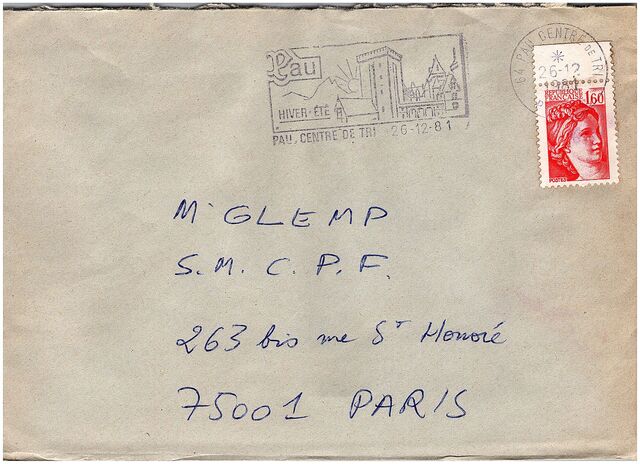 Pau
HIVER-ÉTÉ
PAU, CENTRE DE TRI 26-12-81
64 PAU CENTRE DE TRI
26-12
RÉPUBLIQUE
FRANÇAISE 1,60
POSTES
Mr GLEMP
S. M. C. P. F.
263 bis rue St Honoré
75001 PARIS